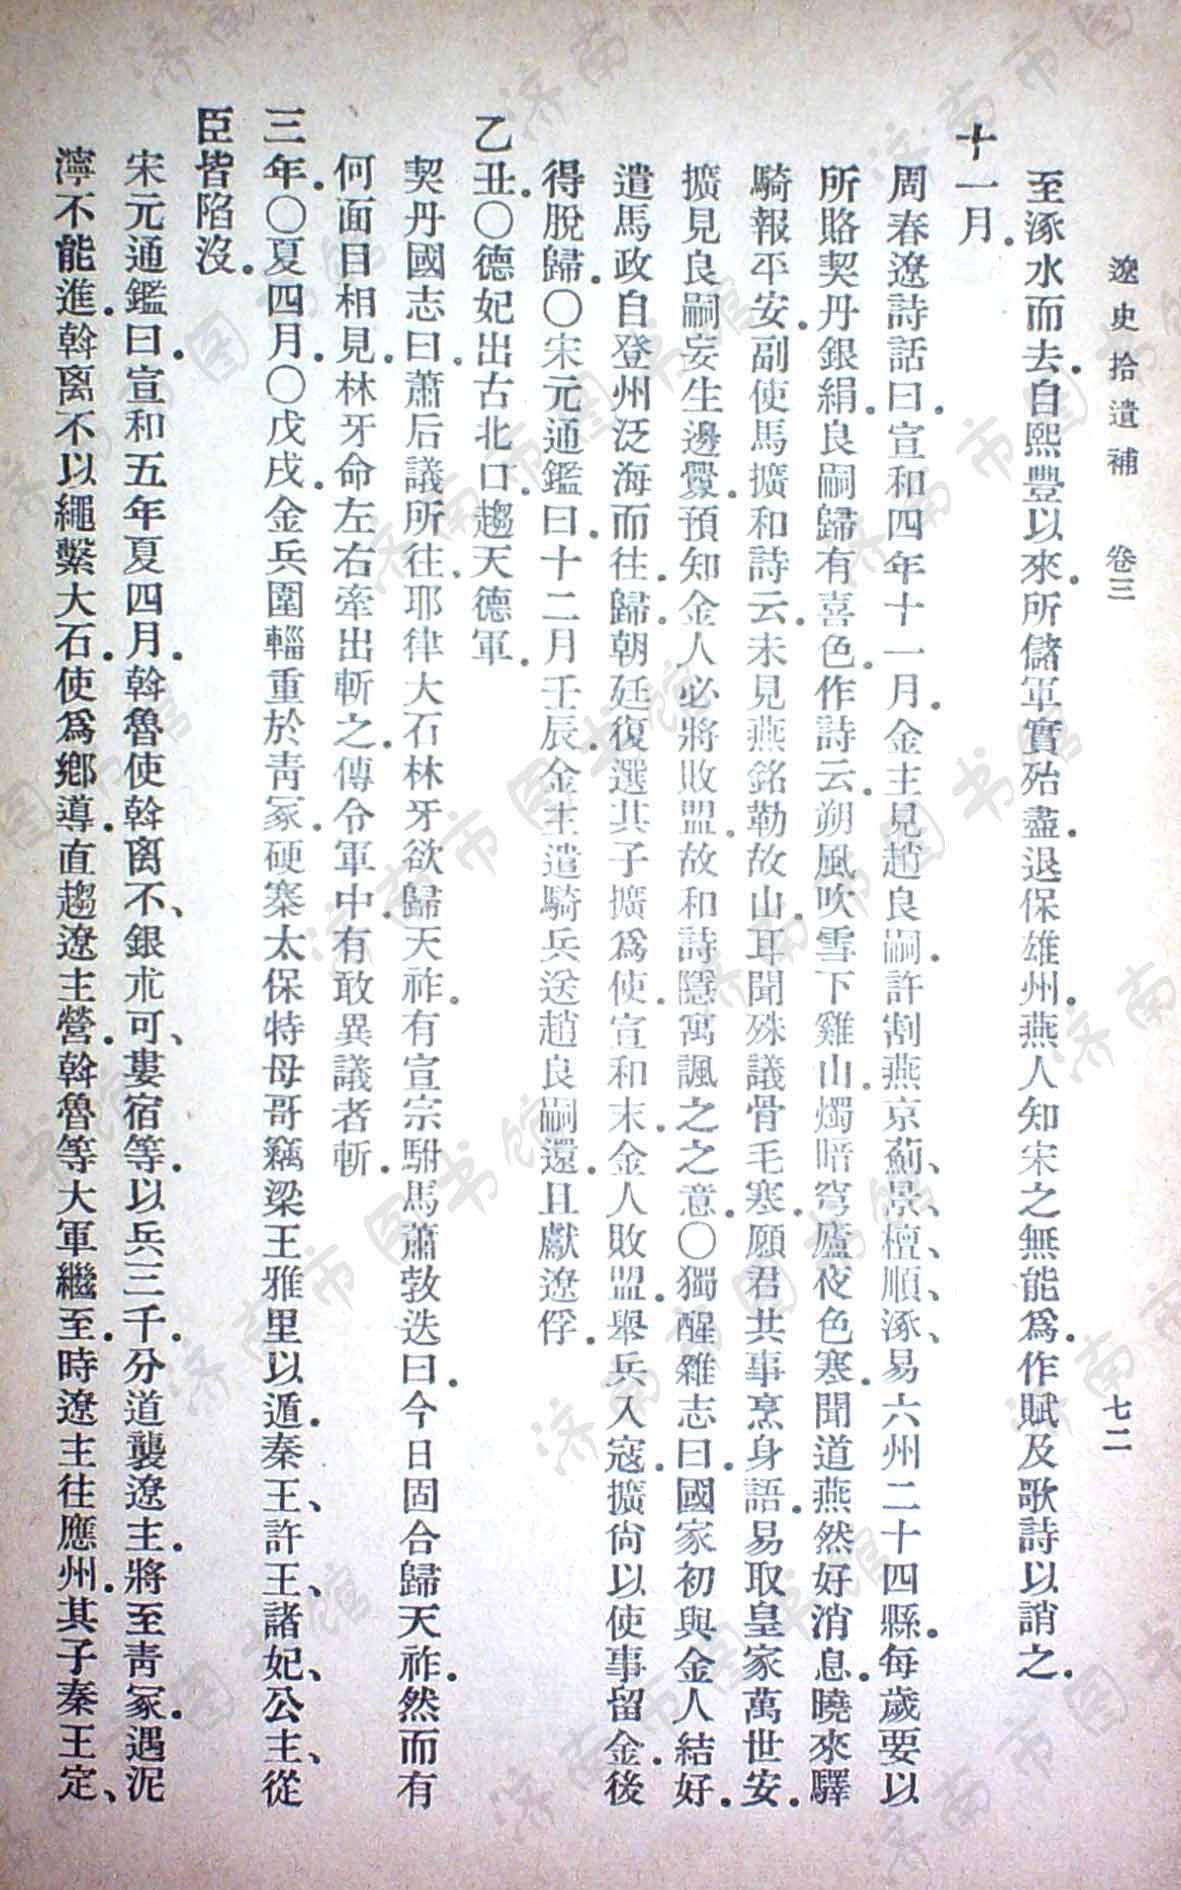 遼史拾遺補　卷三　七二
至涿水而去。自熙豐以來。所儲軍實殆盡。退保雄州。燕人知宋之無能爲。作賦及歌詩以誚之。
十一月。
周春遼詩話曰。宣和四年十一月。金主見趙良嗣。許割燕京薊、景、檀、順、涿、易六州二十四縣。每歲要以
所賂契丹銀絹。良嗣歸有喜色。作詩云。朔風吹雪下雞山。燭暗穹廬夜色寒。聞道燕然好消息。曉來驛
騎報平安。副使馬擴和詩云。未見燕銘勒故山。耳聞殊議骨毛寒。願君共事烹身語。易取皇家萬世安。
擴見良嗣妄生邊釁。預知金人必將敗盟。故和詩隱寓諷之之意。〇獨醒雜志曰。國家初與金人結好。
遣馬政自登州泛海而往。歸朝廷復選其子擴爲使。宣和末。金人敗盟。舉兵入寇。擴尙以使事留金。後
得脫歸。〇宋元通鑑曰。十二月壬辰。金主遣騎兵送趙良嗣還。且獻遼俘。
乙丑。〇德妃出古北口。趨天德軍。
契丹國志曰。蕭后議所往。耶律大石林牙欲歸天祚。有宣宗駙馬蕭敦迭曰。今日固合歸天祚。然而有
何面目相見。林牙命左右牽出斬之。傳令軍中。有敢異議者斬。
三年。〇夏四月。〇戊戌。金兵圍輜重於靑冢。硬寨太保特母哥竊梁王雅里以遁。秦王、許王、諸妃、公主、從
臣皆陷沒。
宋元通鑑曰。宣和五年夏四月。斡魯使斡离不、銀朮可、婁宿等。以兵三千。分道襲遼主。將至靑冢。遇泥
濘不能進。斡离不以繩繫大石。使爲鄉導。直趨遼主營。斡魯等大軍繼至。時遼主往應州。其子秦王定、